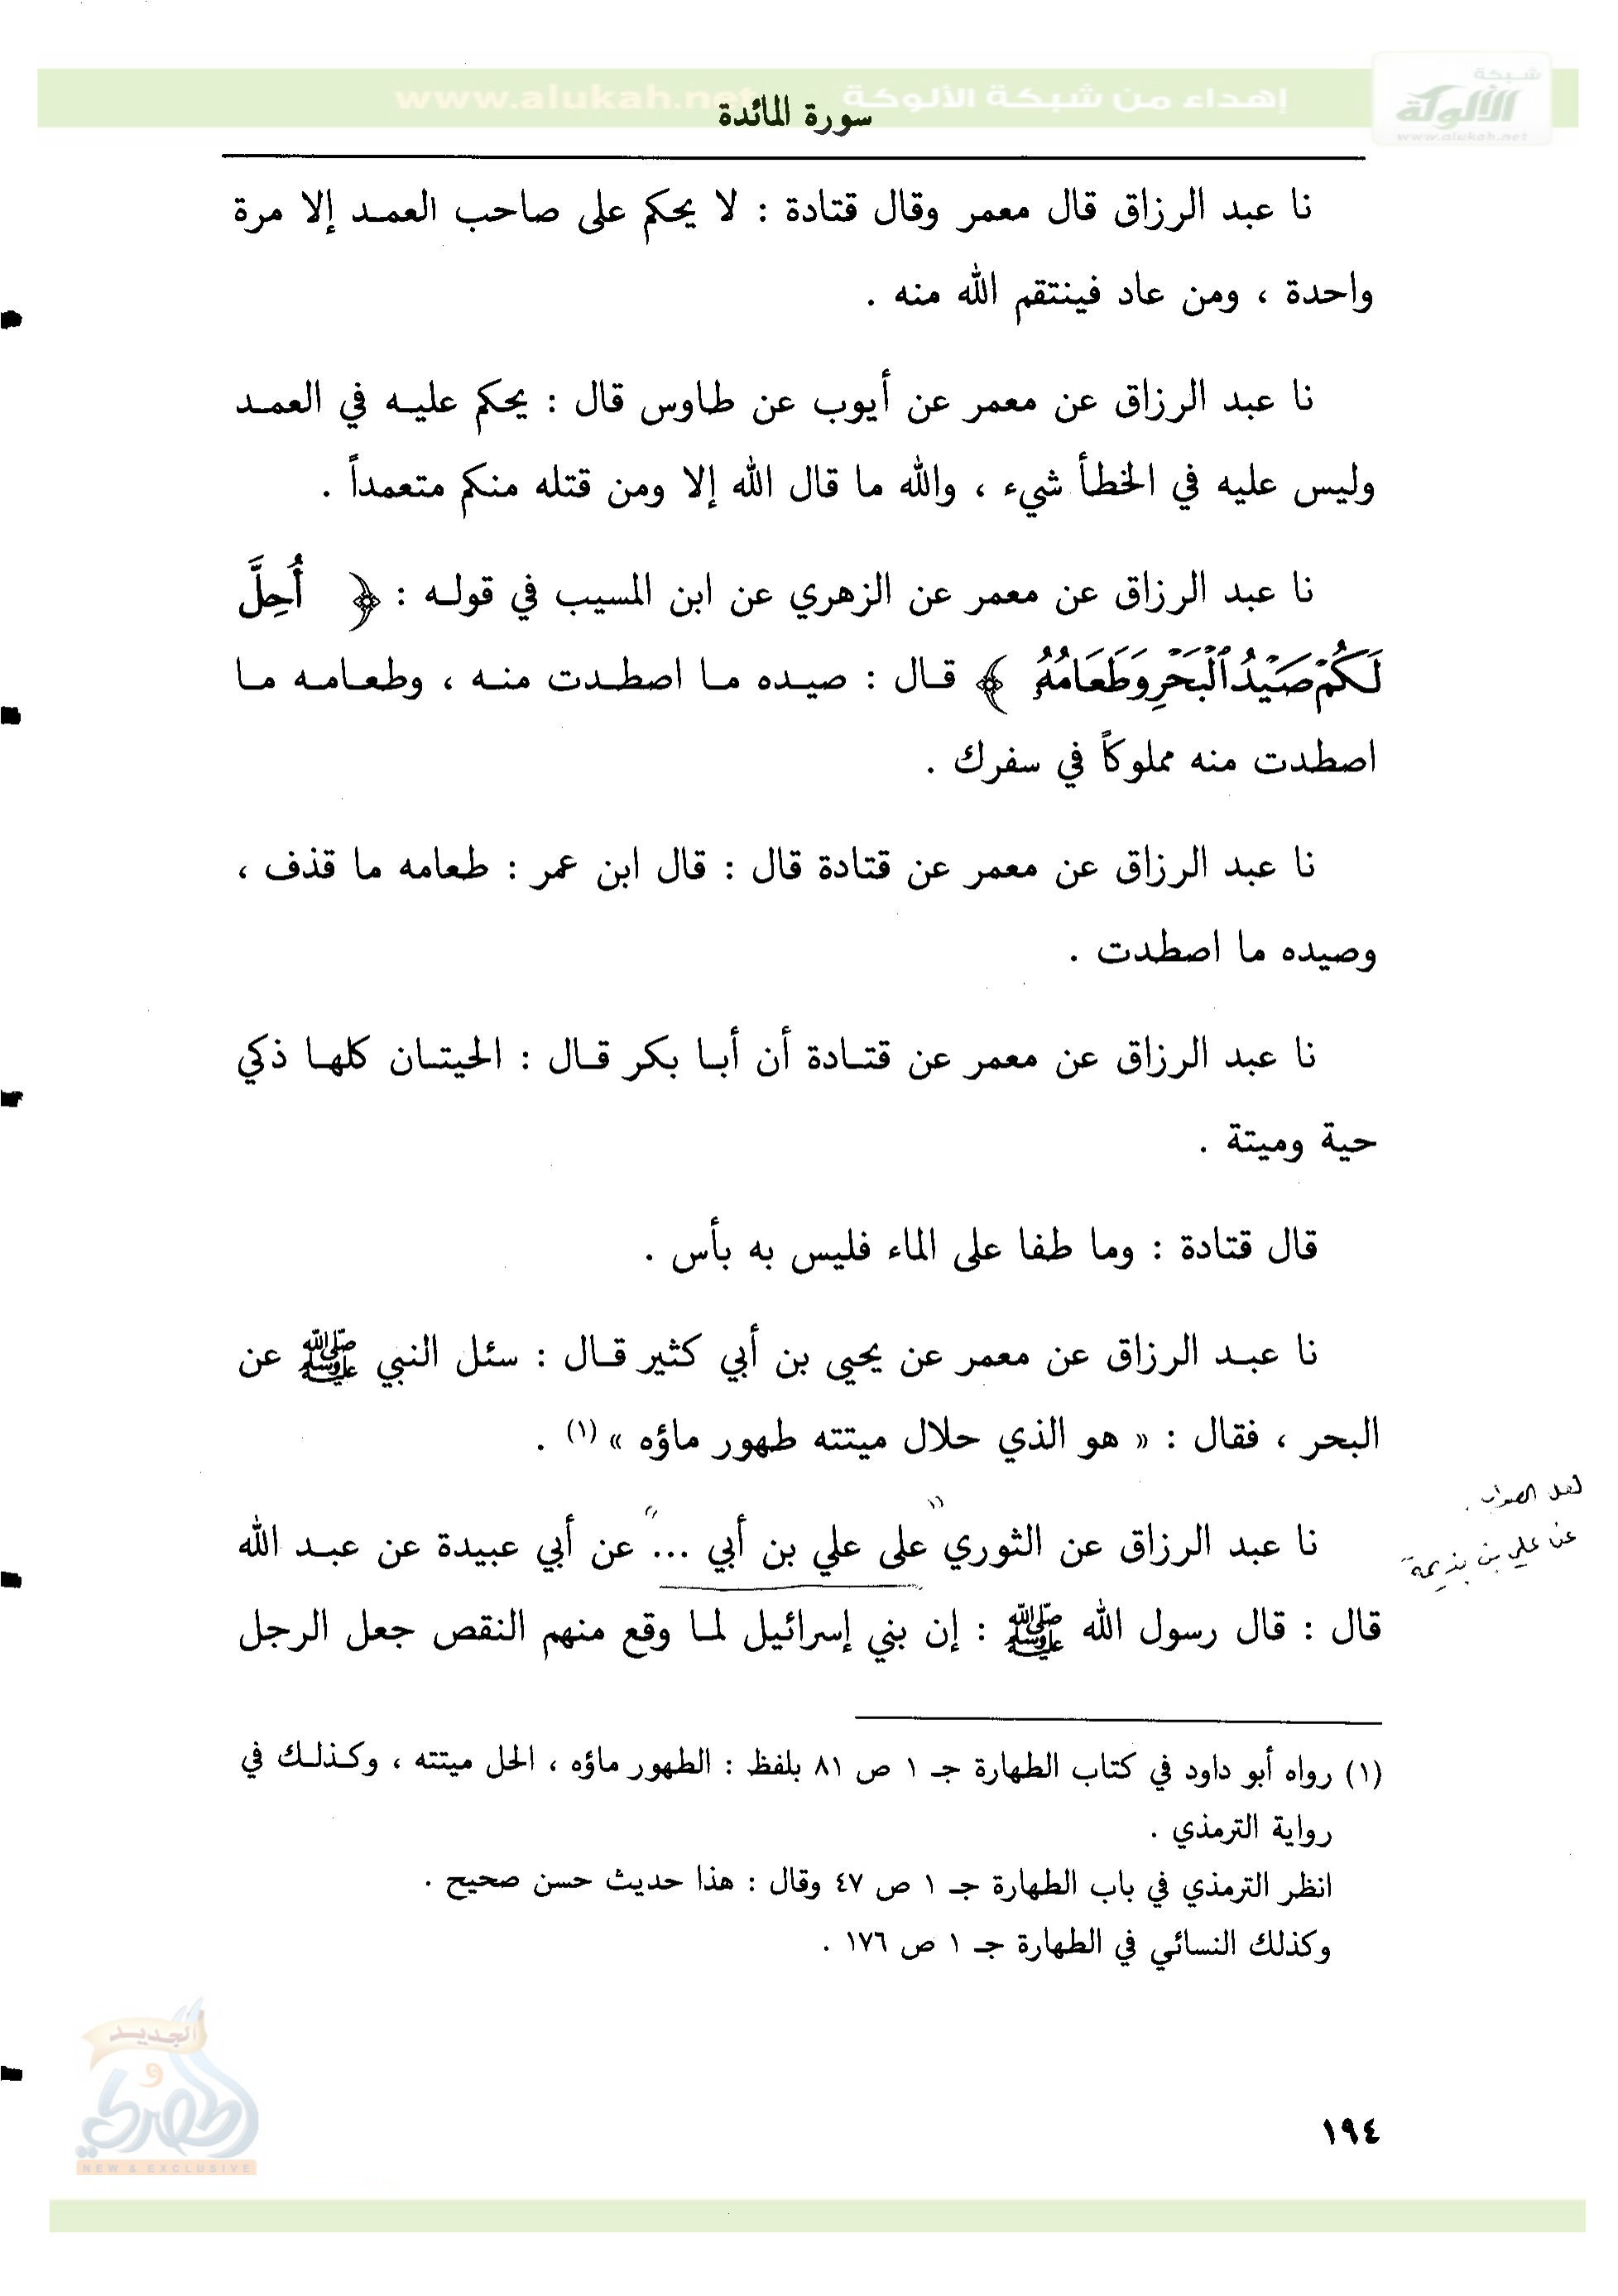 شبكة
الألوكة
www.alukah.net
إهداء من شبكة الألوكة
www.alukah.net
سورة المائدة
نا عبد الرزاق قال معمر وقال قتادة : لا يحكم على صاحب العمد إلا مرة
واحدة ، ومن عاد فينتقم الله منه .
نا عبد الرزاق عن معمر عن أيوب عن طاوس قال : يحكم عليه في العمد
وليس عليه في الخطأ شيء ، والله ما قال الله إلا ومن قتله منكم متعمداً .
نا عبد الرزاق عن معمر عن الزهري عن ابن المسيب في قوله : ﴿ أُحِلَّ
لَكُمْ صَيْدُ ٱلْبَحْرِ وَطَعَامُهُۥ ﴾ قال : صيده ما اصطدت منه ، وطعامه ما
اصطدت منه مملوكاً في سفرك .
نا عبد الرزاق عن معمر عن قتادة قال : قال ابن عمر : طعامه ما قذف ،
وصيده ما اصطدت .
نا عبد الرزاق عن معمر عن قتادة أن أبا بكر قال : الحيتان كلها ذكي
حية وميتة .
قال قتادة : وما طفا على الماء فليس به بأس .
نا عبد الرزاق عن معمر عن يحيى بن أبي كثير قال : سئل النبي ﷺ عن
البحر ، فقال : « هو الذي حلال ميتته طهور ماؤه » (١) .
لعل الصواب .
عن علي بن بذيمة
نا عبد الرزاق عن الثوري " على علي بن أبي ... " عن أبي عبيدة عن عبد الله
قال : قال رسول الله ﷺ : إن بني إسرائيل لما وقع منهم النقص جعل الرجل
(١) رواه أبو داود في كتاب الطهارة جـ ١ ص ٨١ بلفظ : الطهور ماؤه ، الحل ميتته ، وكذلك في
رواية الترمذي .
انظر الترمذي في باب الطهارة جـ ١ ص ٤٧ وقال : هذا حديث حسن صحيح .
وكذلك النسائي في الطهارة جـ ١ ص ١٧٦ .
الجديد
و
الحصري
NEW & EXCLUSIVE
١٩٤